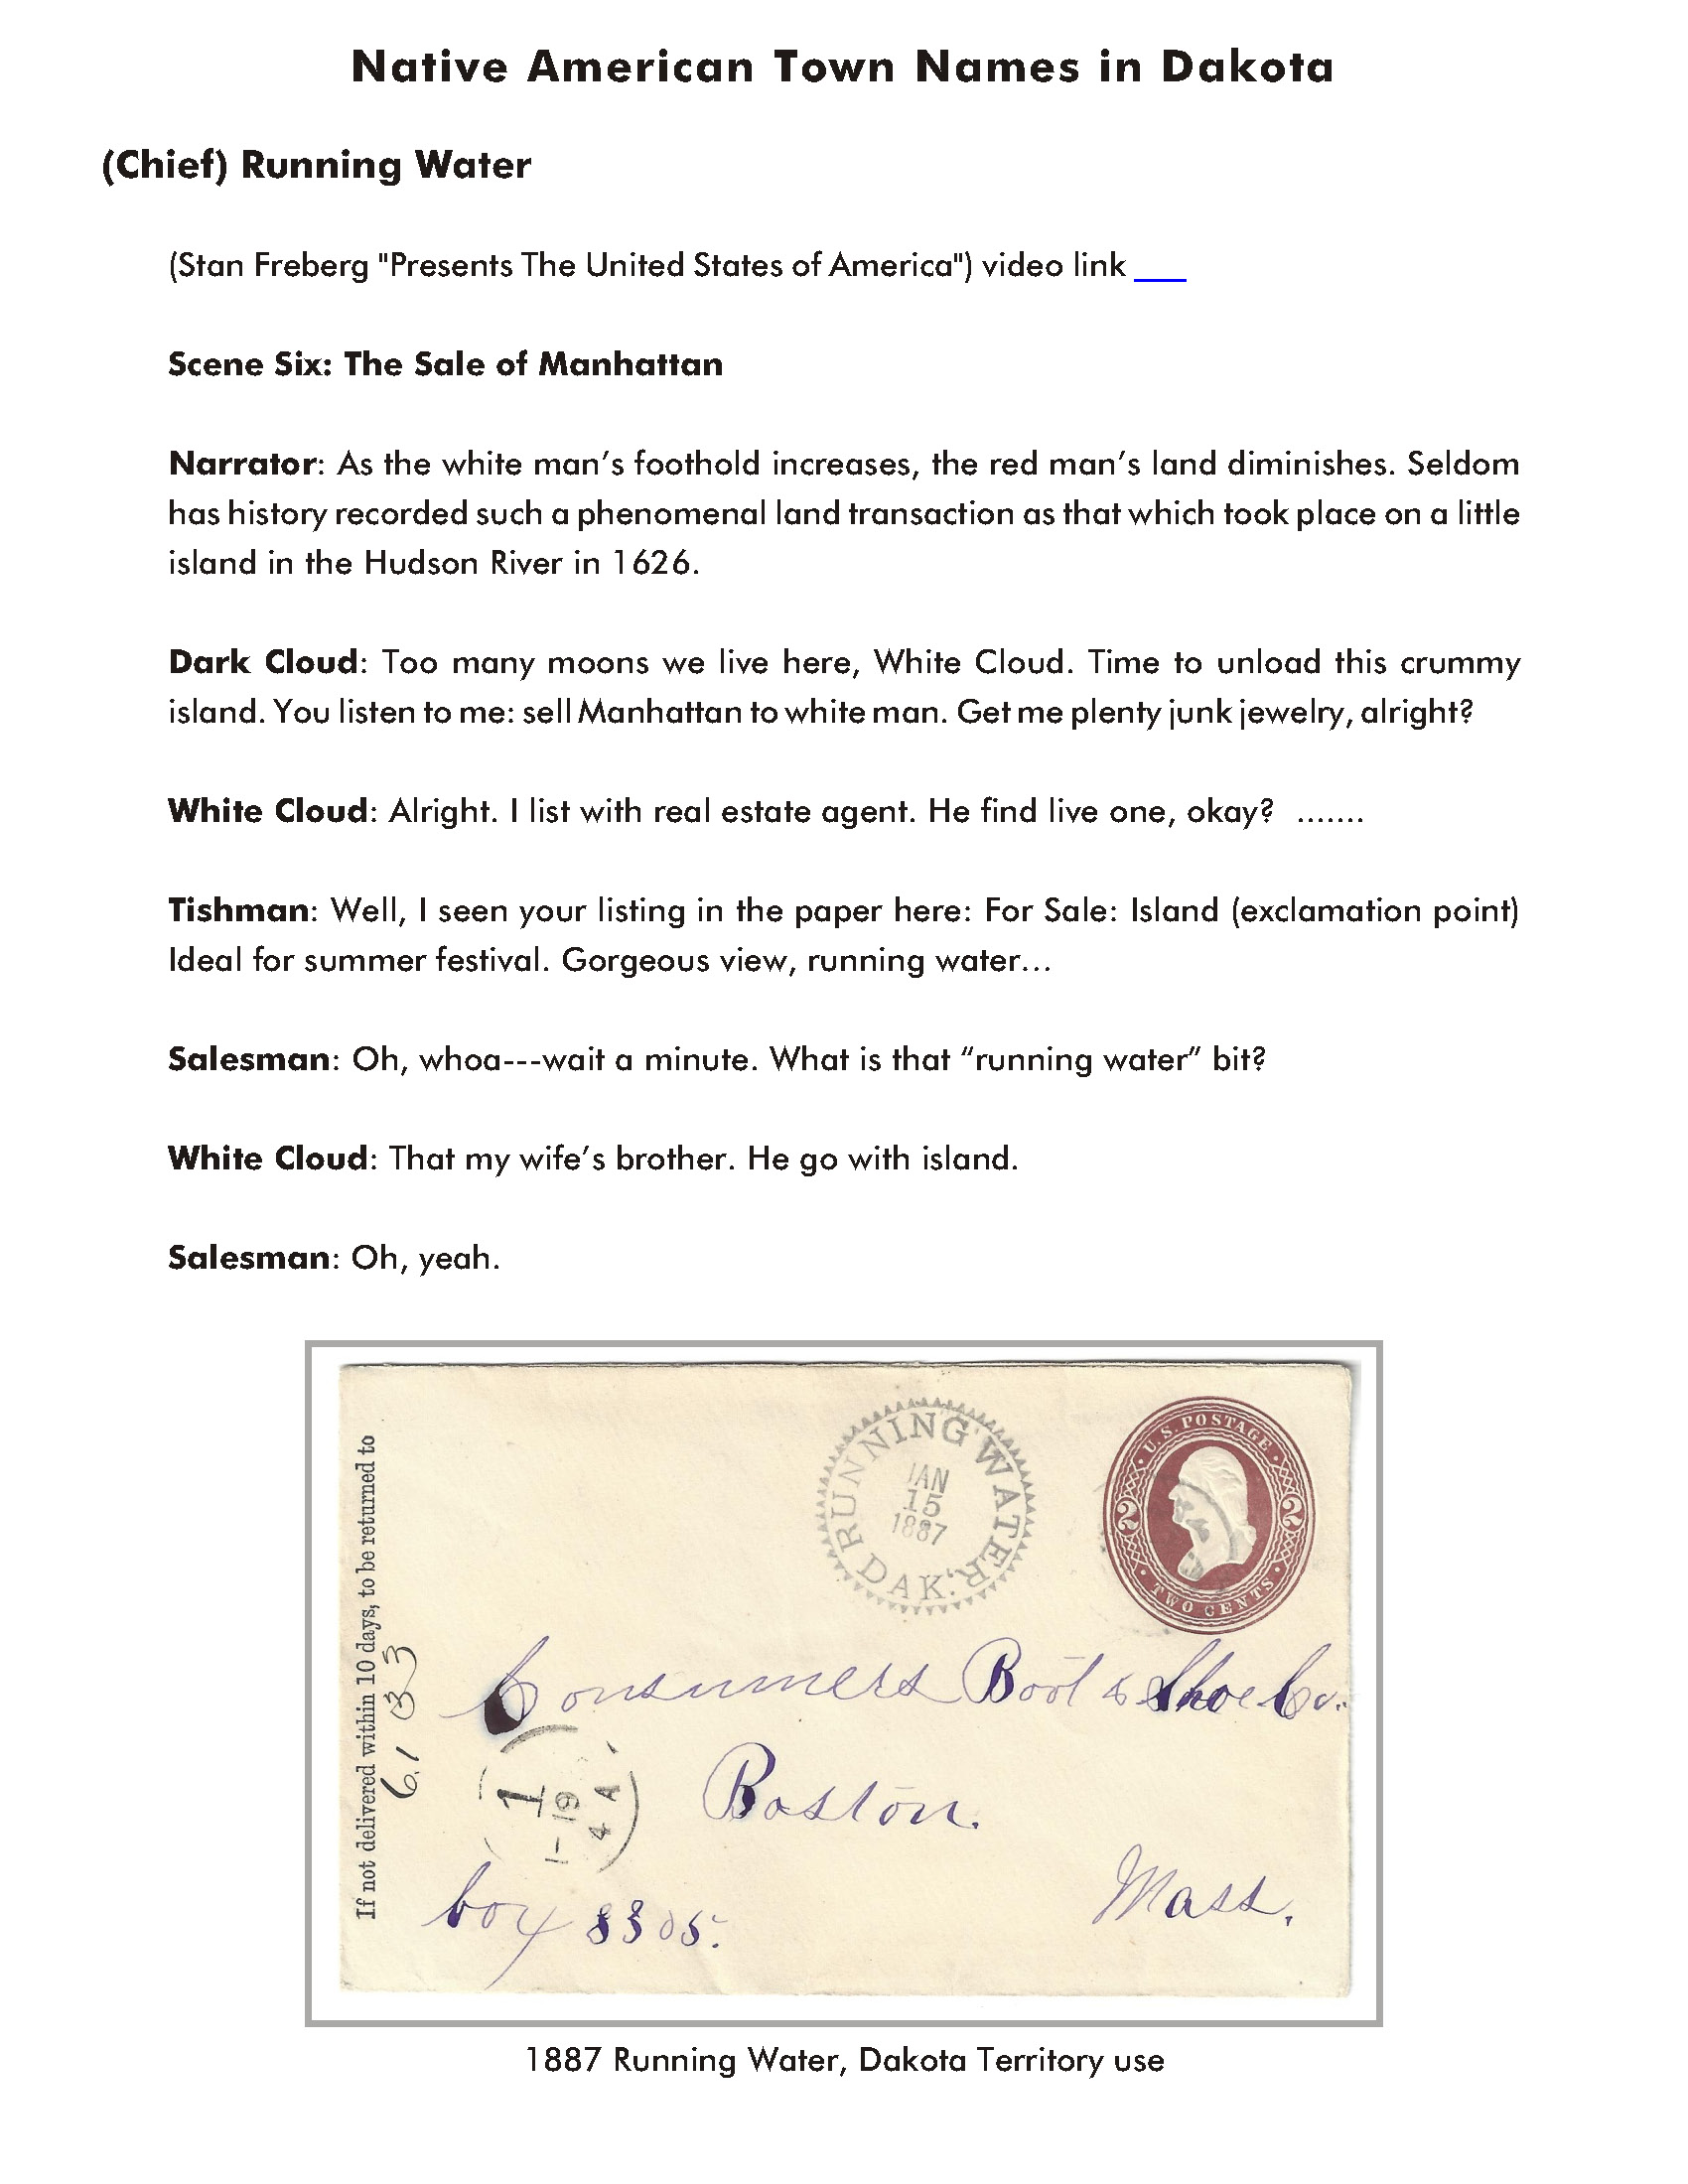 Native American Town Names in Dakota
(Chief) Running Water
(Stan Freberg "Presents The United States of America") video link ___
Scene Six: The Sale of Manhattan
Narrator: As the white man’s foothold increases, the red man’s land diminishes. Seldom
has history recorded such a phenomenal land transaction as that which took place on a little
island in the Hudson River in 1626.
Dark Cloud: Too many moons we live here, White Cloud. Time to unload this crummy
island. You listen to me: sell Manhattan to white man. Get me plenty junk jewelry, alright?
White Cloud: Alright. I list with real estate agent. He find live one, okay?  .......
Tishman: Well, I seen your listing in the paper here: For Sale: Island (exclamation point)
Ideal for summer festival. Gorgeous view, running water...
Salesman: Oh, whoa---wait a minute. What is that “running water” bit?
White Cloud: That my wife’s brother. He go with island.
Salesman: Oh, yeah.
If not delivered within 10 days, to be returned to
RUNNING WATER
JAN
15
1887
DAK.
U.S. POSTAGE
2 2
TWO CENTS
Consumers Boot & Shoe Co.
Boston.
Mass.
box 3305.
1
1-19
4 A
1887 Running Water, Dakota Territory use